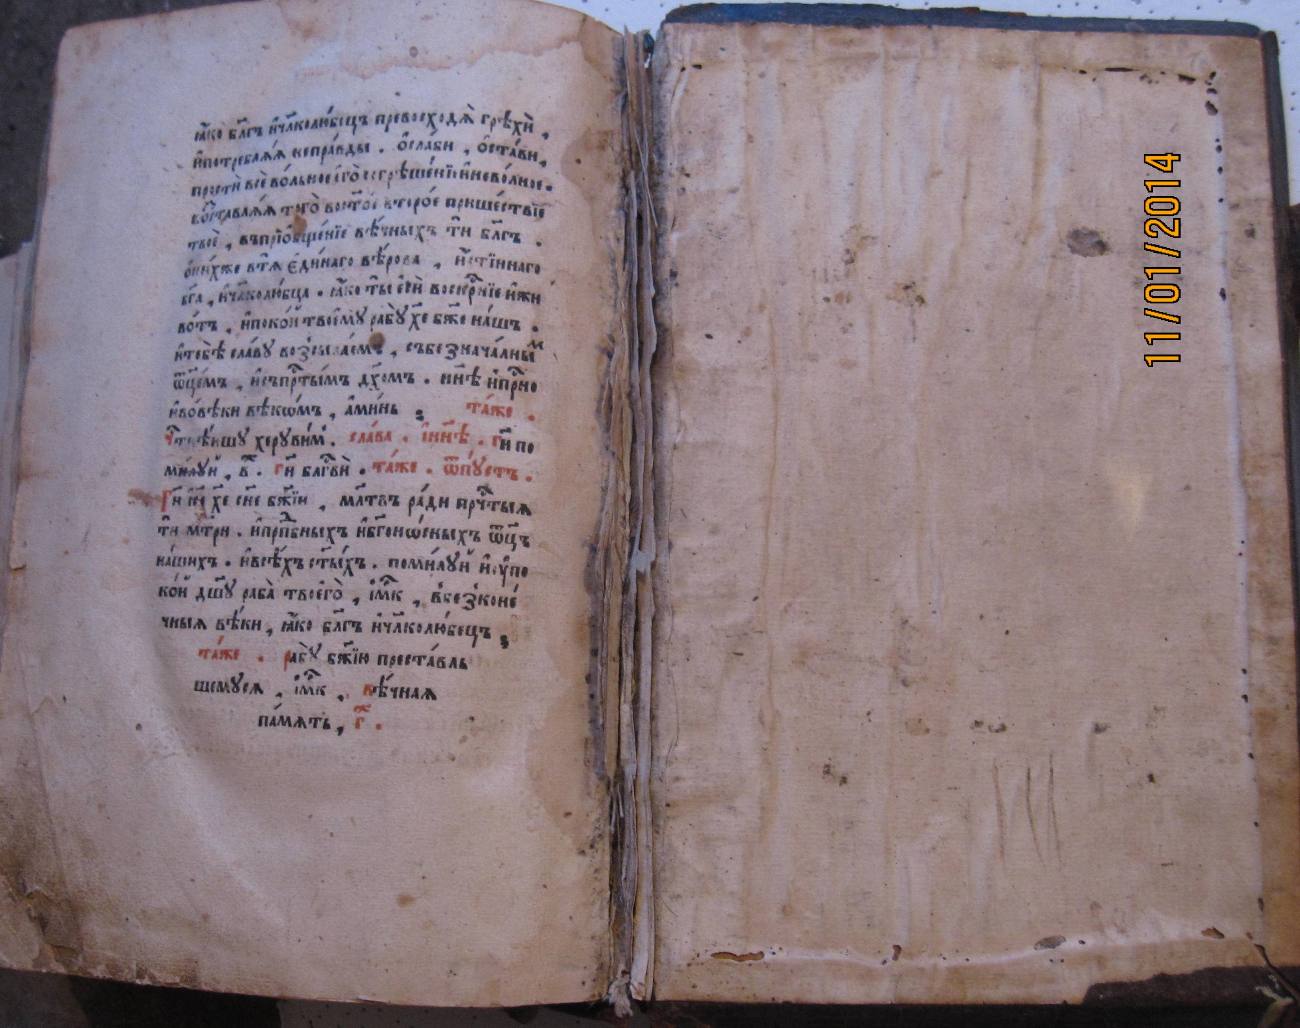 ꙗ҆́кѡ бл҃гъ и҆чл҃колю́бецъ превосходѧ̀ грѣхѝ ,
и҆потреблѧ́ѧ непра́вды . ѡ҆сла́би , ѡ҆ста́ви ,
простѝ всѐ во́льное є҆гѡ̀ согрѣше́нїе и҆нево́лное .
возставлѧ́ѧ того̀ вост҃о́е второ́е прише́ствїе
твоѐ , въпрїѡбще́нїе вѣ́чныхъ тѝ бл҃гъ .
ѻ҆ни́хже втѧ̀ є҆ди́наго вѣ́рова , и҆́стиннаго
бг҃а , и҆чл҃колю́бца . ꙗ҆́кѡ ты̀ є҆сѝ воскрⷭ҇нїе и҆жи
во́тъ , и҆поко́й твоемꙋ̀ рабꙋ̀ хе҃ бж҃е на́шъ .
и҆тебѣ̀ сла́вꙋ возсыла́емъ , събезнача́лнымъ
ѿц҃е́мъ , и҆съпрⷭ҇ты́мъ дх҃омъ . нн҃ѣ и҆при́снѡ
и҆вовѣ́ки вѣкѡ́мъ , а҆ми́нь . та́же .
Чⷭ҇тнѣ́йшꙋ херꙋви́мъ . сла́ва . и҆нн҃ѣ . гй҃ по
ми́лꙋй , в҃ . гй҃ бл҃гвѝ . та́же . ѿпꙋ́стъ .
Гй҃ і҆с҃ хе҃ сн҃е бж҃їи , мл҃твъ ра́ди прⷱ҇тыѧ
тѝ мт҃ри . и҆прпⷣбныхъ и҆бг҃оно́сныхъ ѿц҃ъ
на́шихъ . и҆всѣ́хъ ст҃ы́хъ . поми́лꙋй и҆ᲂу҆по
ко́й дш҃ꙋ раба̀ твоегѡ̀ , и҆́мкъ , вбезконе́
чныѧ вѣ́ки , ꙗ҆́кѡ бл҃гъ и҆чл҃колю́бецъ ,
та́же . рабꙋ̀ бж҃їю преста́вль
шемꙋсѧ , и҆́мкъ , вѣ́чнаѧ
па́мѧть , г҃ .
11/01/2014